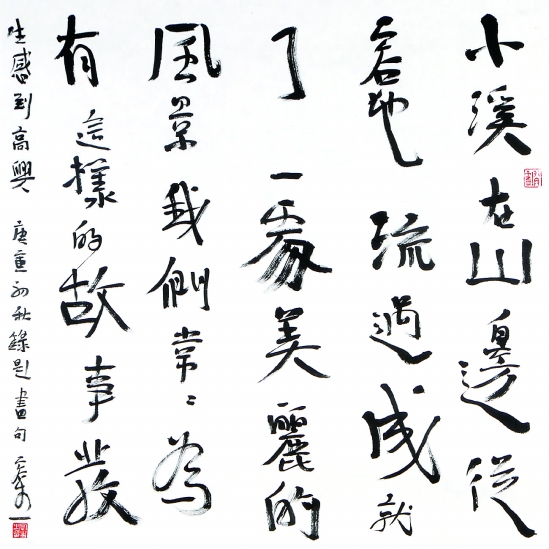 小溪在山邊從
容地流過成就
了一處美麗的
風景我們常常為
有這樣的故事發
生感到高興 庚寅初秋錄題畫句